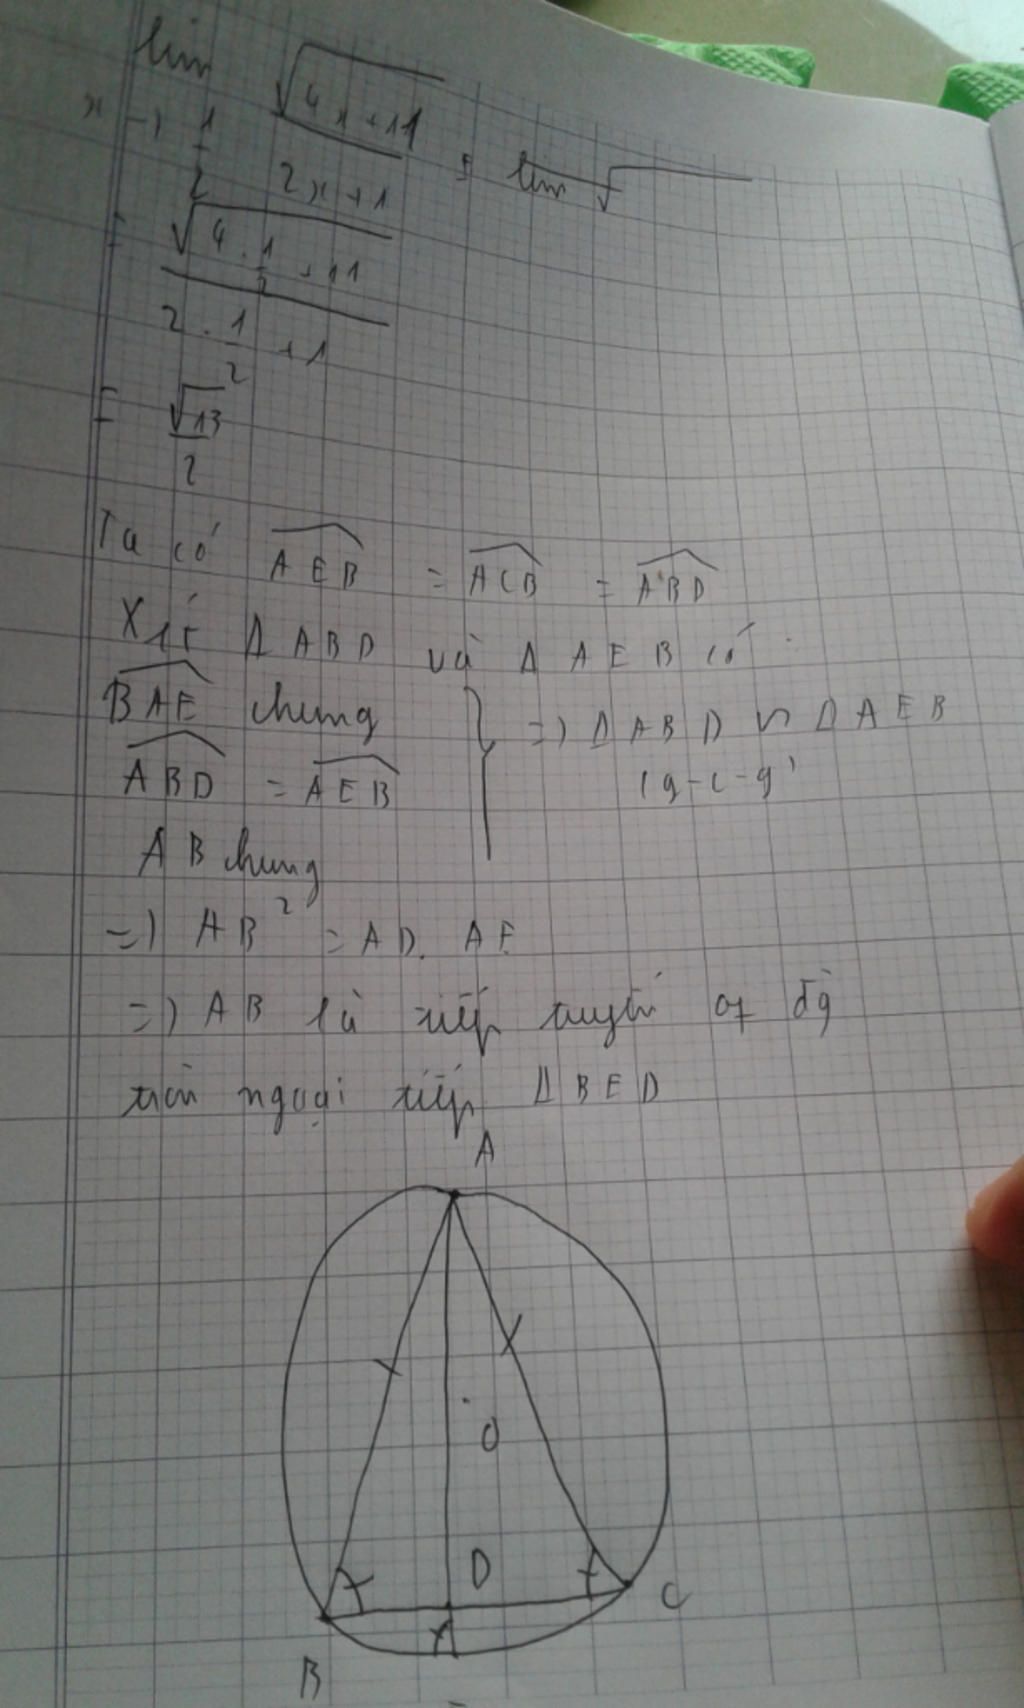 lim √(4x+11) / (2x+1) = lim √
x → 1/2
= √(4 · 1/2 + 11) / (2 · 1/2 + 1)
= √13 / 2
Ta có AEB = ACB = ABD
Xét Δ ABD và Δ AEB có
BAE chung } => Δ ABD ∽ Δ AEB
ABD = AEB (g-c-g)
AB chung
=> AB² = AD. AE
=> AB là tiếp tuyến of đg
tròn ngoại tiếp Δ BED
A
O
D
C
B